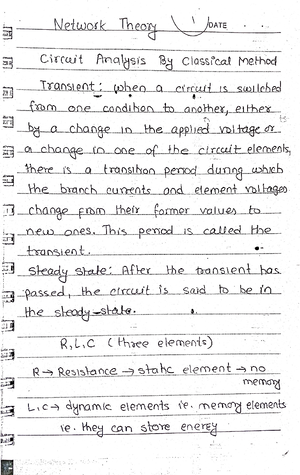 Network Theory DATE
Circuit Analysis By Classical Method
Transient: When a circuit is switched
from one condition to another, either
by a change in the applied voltage or
a change in one of the circuit elements,
there is a transition period during which
the branch currents and element voltages
change from their former values to
new ones. This period is called the
transient.
Steady State: After the transient has
passed, the circuit is said to be in
the steady-state.
R,L,C (three elements)
R → Resistance → static element → no
memory
L,C → dynamic elements ie. memory elements
ie. they can store energy